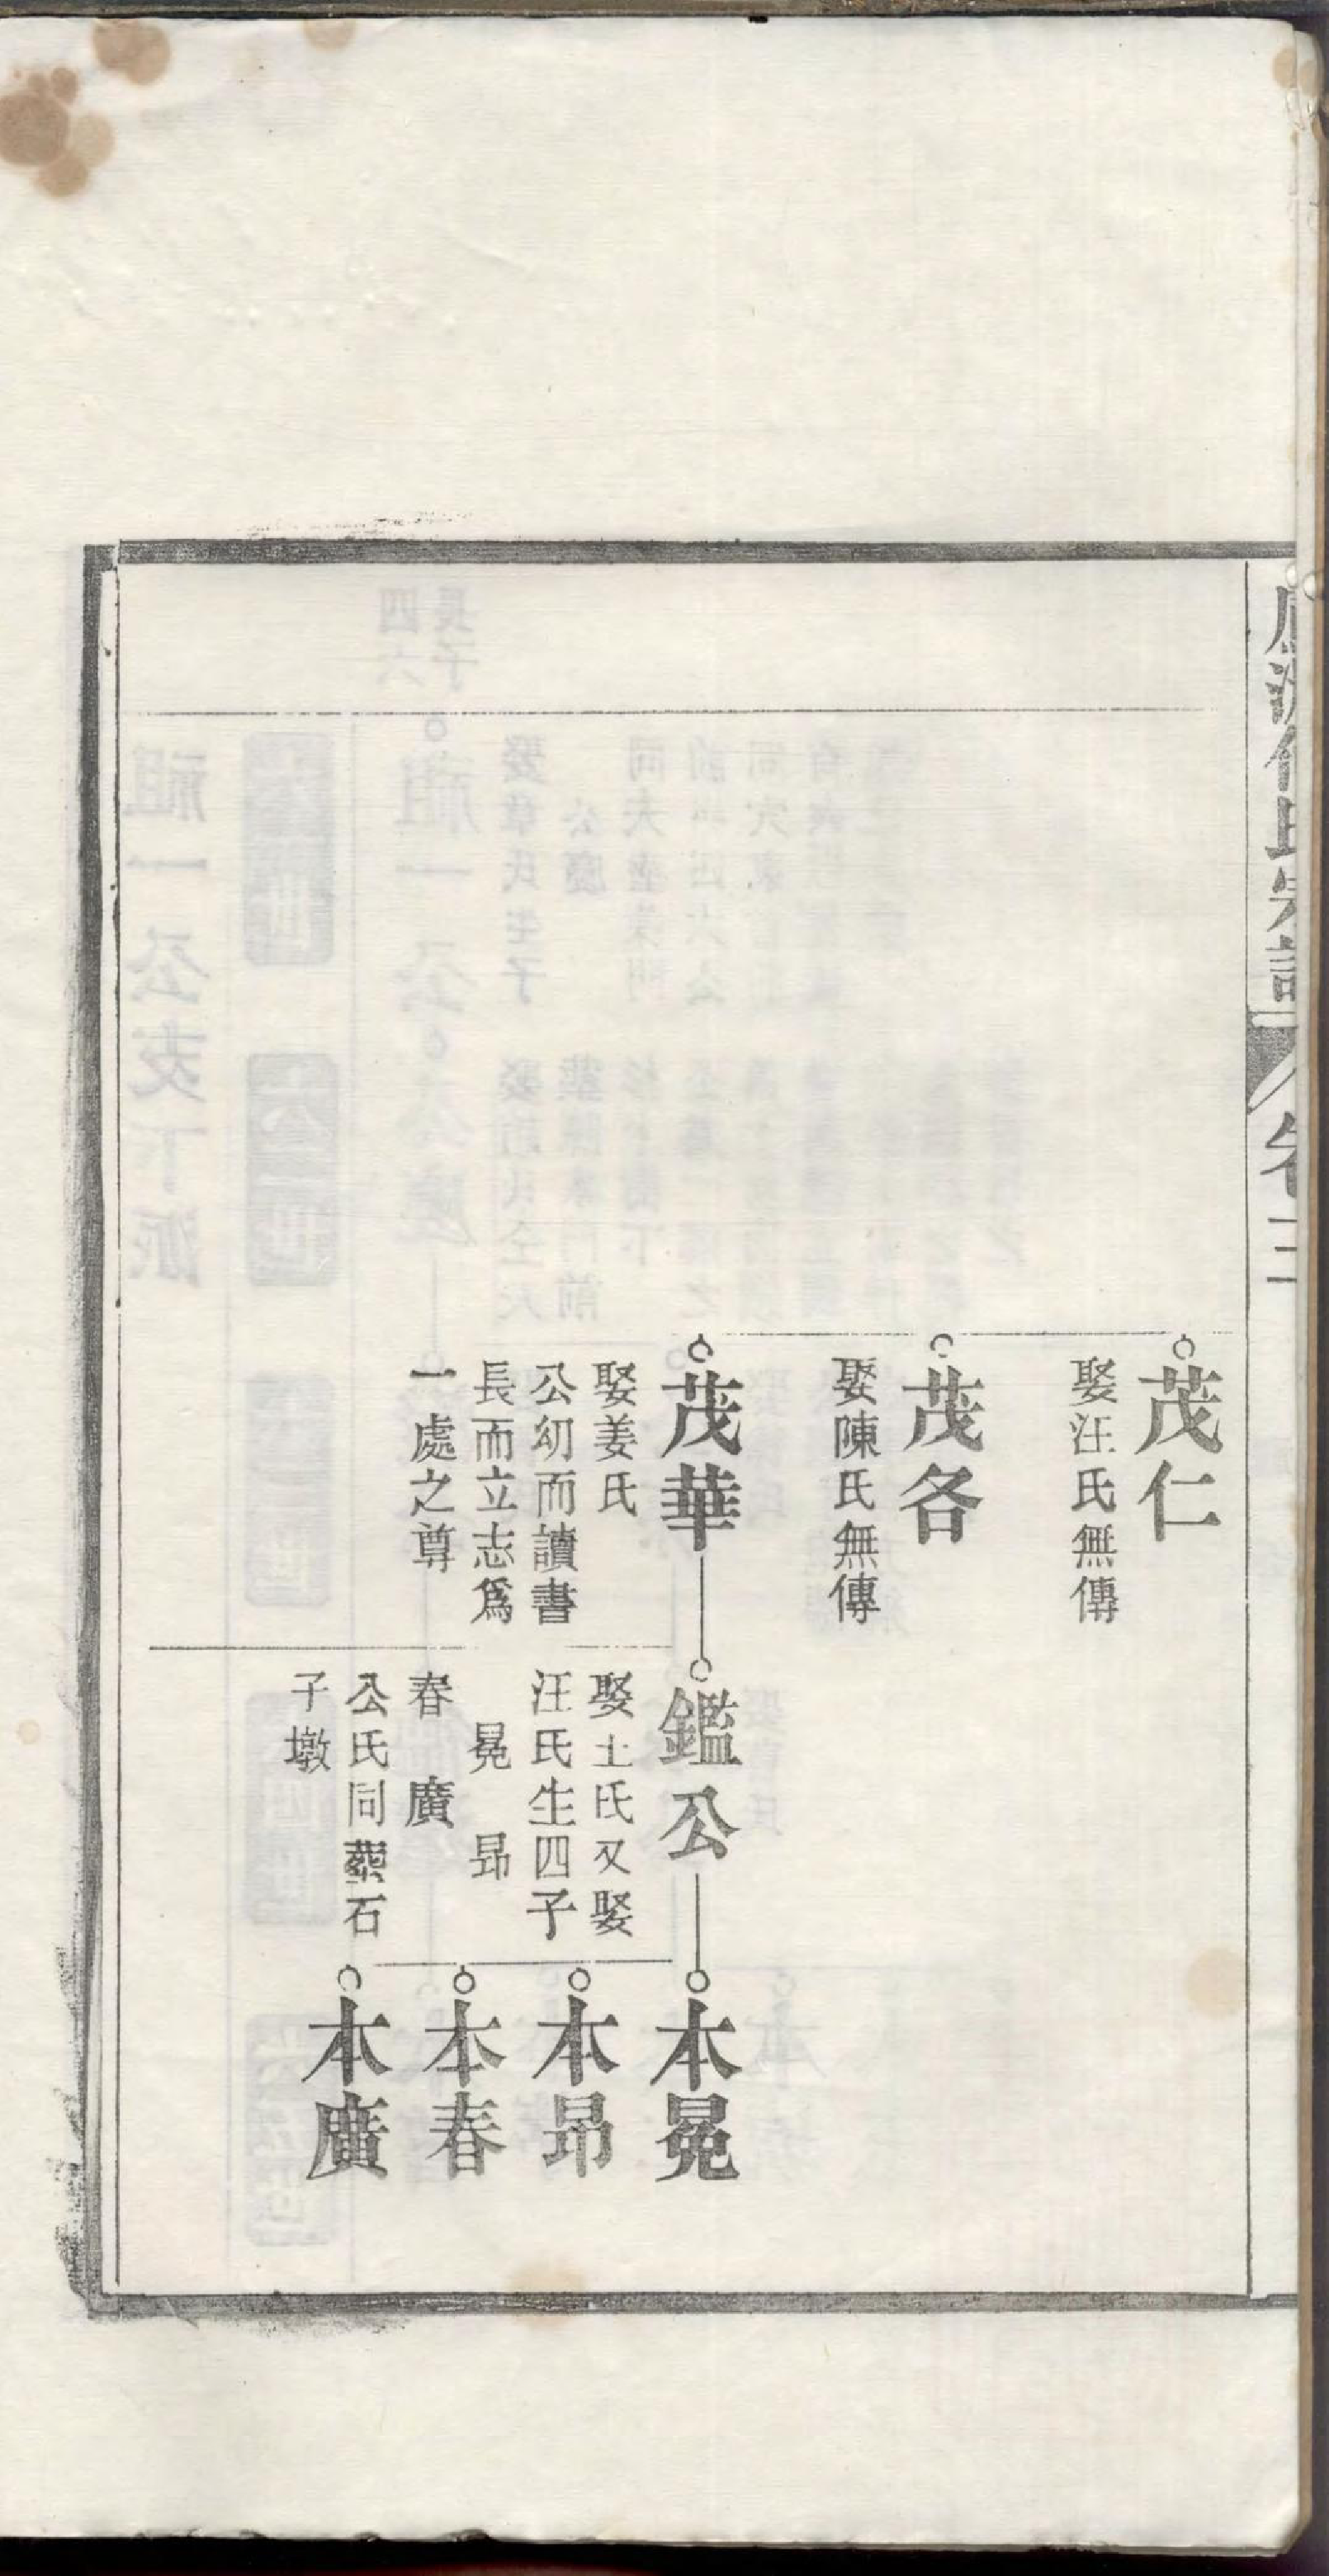 氏宗譜
卷三
茂仁
娶汪氏無傳
茂各
娶陳氏無傳
茂華
娶姜氏
公幼而讀書
長而立志爲
一處之尊
鑑公
娶土氏又娶
汪氏生四子
冕 昻
春 廣
公氏同葬石
子墩
本冕
本昻
本春
本廣